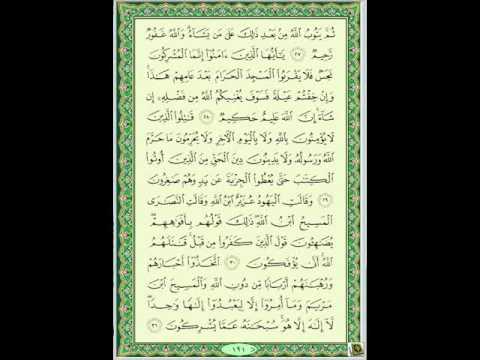 ثُمَّ يَتُوبُ اللَّهُ مِنْ بَعْدِ ذَلِكَ عَلَى مَنْ يَشَاءُ وَاللَّهُ غَفُورٌ
رَحِيمٌ ٢٧ يَا أَيُّهَا الَّذِينَ آمَنُوا إِنَّمَا الْمُشْرِكُونَ
نَجَسٌ فَلَا يَقْرَبُوا الْمَسْجِدَ الْحَرَامَ بَعْدَ عَامِهِمْ هَذَا
وَإِنْ خِفْتُمْ عَيْلَةً فَسَوْفَ يُغْنِيكُمُ اللَّهُ مِنْ فَضْلِهِ إِنْ
شَاءَ إِنَّ اللَّهَ عَلِيمٌ حَكِيمٌ ٢٨ قَاتِلُوا الَّذِينَ
لَا يُؤْمِنُونَ بِاللَّهِ وَلَا بِالْيَوْمِ الْآخِرِ وَلَا يُحَرِّمُونَ مَا حَرَّمَ
اللَّهُ وَرَسُولُهُ وَلَا يَدِينُونَ دِينَ الْحَقِّ مِنَ الَّذِينَ أُوتُوا
الْكِتَابَ حَتَّى يُعْطُوا الْجِزْيَةَ عَنْ يَدٍ وَهُمْ صَاغِرُونَ
٢٩ وَقَالَتِ الْيَهُودُ عُزَيْرٌ ابْنُ اللَّهِ وَقَالَتِ النَّصَارَى
الْمَسِيحُ ابْنُ اللَّهِ ذَلِكَ قَوْلُهُمْ بِأَفْوَاهِهِمْ
يُضَاهِئُونَ قَوْلَ الَّذِينَ كَفَرُوا مِنْ قَبْلُ قَاتَلَهُمُ
اللَّهُ أَنَّى يُؤْفَكُونَ ٣٠ اتَّخَذُوا أَحْبَارَهُمْ
وَرُهْبَانَهُمْ أَرْبَابًا مِنْ دُونِ اللَّهِ وَالْمَسِيحَ ابْنَ
مَرْيَمَ وَمَا أُمِرُوا إِلَّا لِيَعْبُدُوا إِلَهًا وَاحِدًا
لَا إِلَهَ إِلَّا هُوَ سُبْحَانَهُ عَمَّا يُشْرِكُونَ ٣١
١٩١